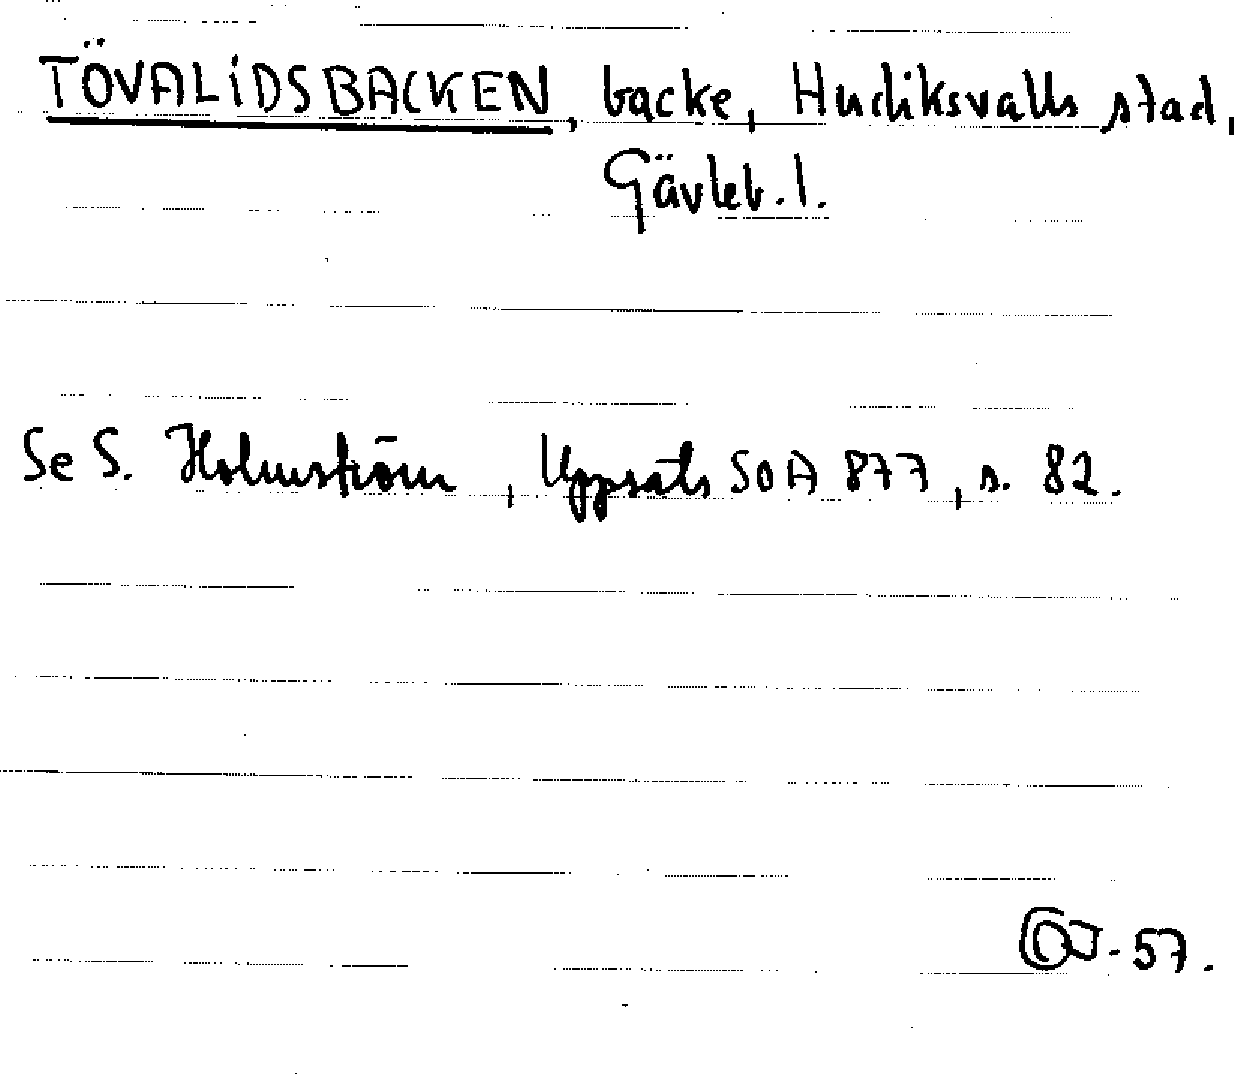 TÖVALIDSBACKEN, backe, Hudiksvalls stad,
Gävleb. l.
Se S. Holmström, Uppsats SOA 877, s. 82.
-57.